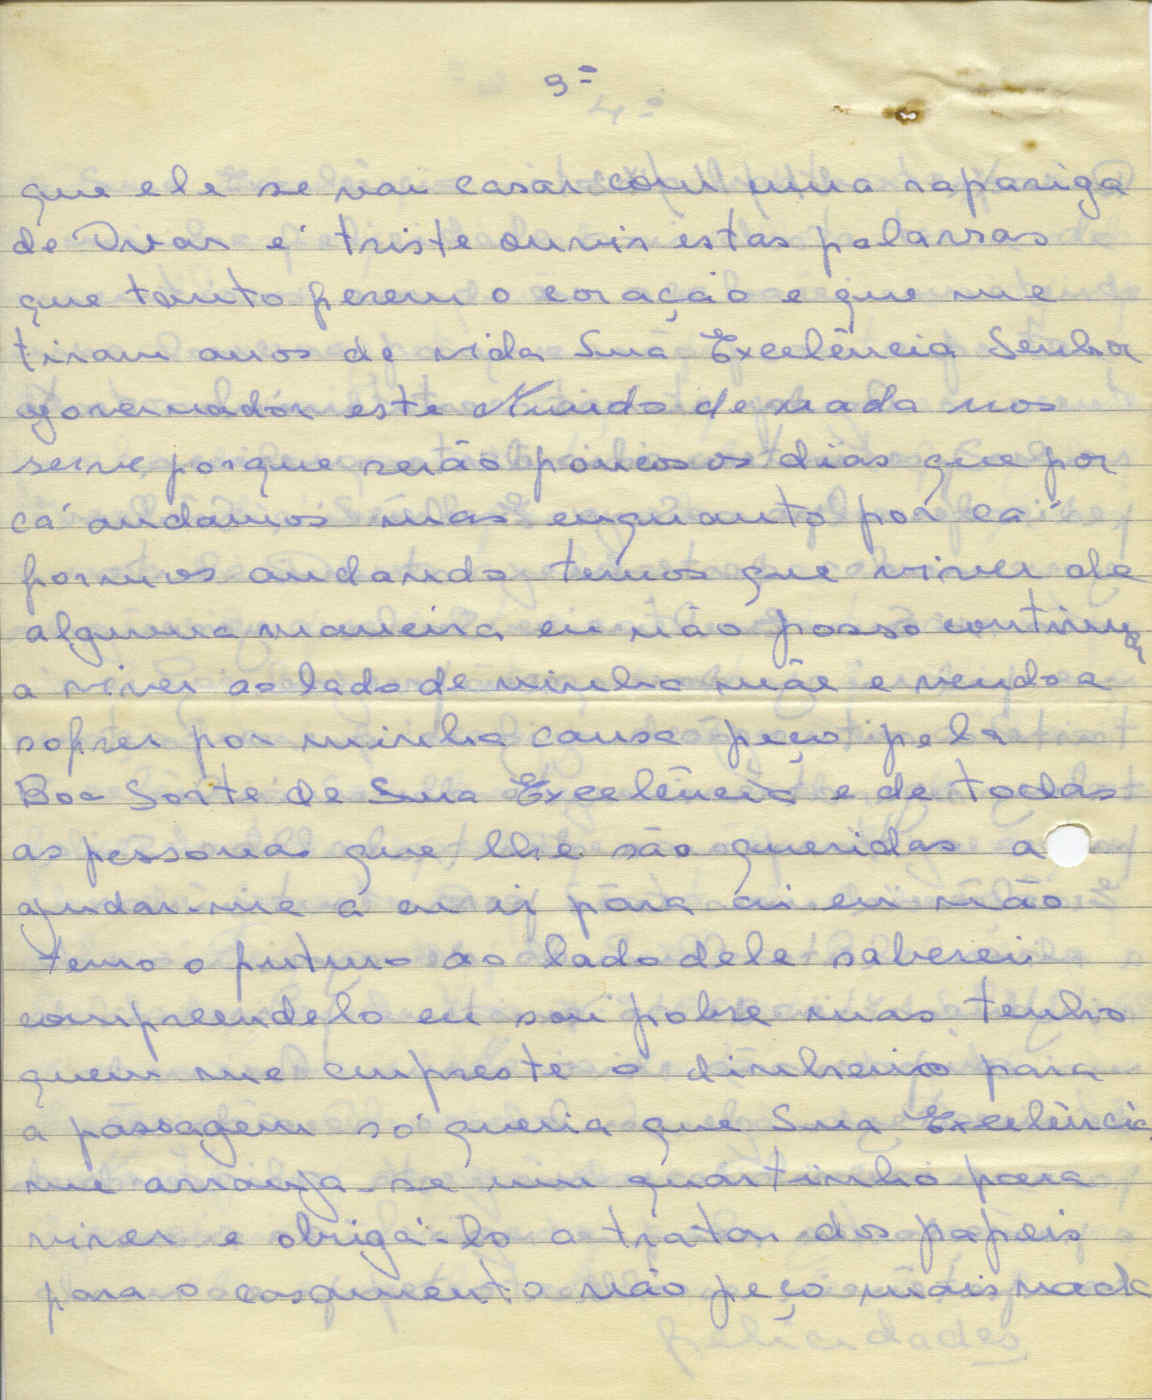 3º
que ele se vai casar com uma rapariga
de Ovar é triste ouvir estas palavras
que tanto ferem o coração e que me
tiram anos de vida Sua Excelência Senhor
governador este Mundo de nada nos
serve porque serão poucos os dias que por
cá andâmos mas enquanto por cá
formos andando temos que viver de
alguma maneira eu não posso continuar
a viver ao lado de minha mãe e vendo a
sofrer por minha causa peço pela
Boa Sorte de Sua Excelência e de todas
as pessoas que lhe são queridas a
ajudar-me a eu ir para ai eu não
temo o futuro ao lado dele saberei
compreendelo eu sou pobre mas tenho
quem me empreste o dinheiro para
a passagem só queria que Sua Excelência
me arranja-se um quartinho para
viver e obrigá-lo a tratar dos papeis
para o casamento não peço mais nada